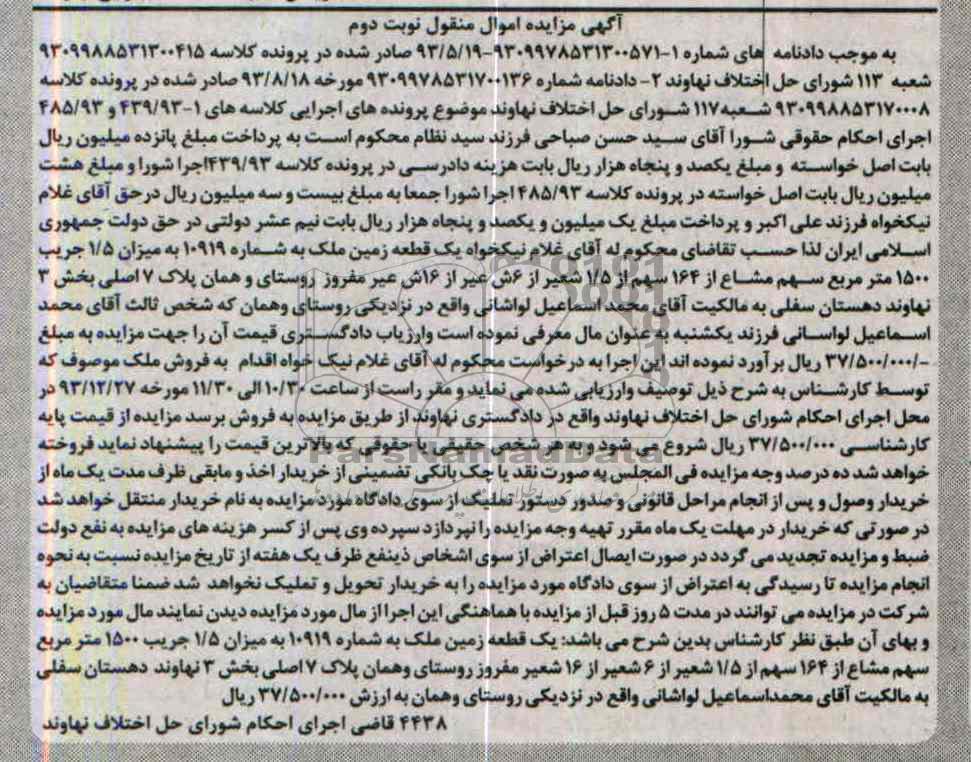 آگهی مزایده اموال منقول نوبت دوم
به موجب دادنامه های شماره ۱-۹۳۰۹۹۷۸۵۳۱۳۰۰۵۷۱-۹۳/۵/۱۹ صادر شده در پرونده کلاسه ۹۳۰۹۹۸۸۵۳۱۳۰۰۴۱۵
شعبه ۱۱۳ شورای حل اختلاف نهاوند ۲- دادنامه شماره ۹۳۰۹۹۷۸۵۳۱۷۰۰۱۳۶ مورخه ۹۳/۸/۱۸ صادر شده در پرونده کلاسه
۹۳۰۹۹۸۸۵۳۱۷۰۰۰۸ شعبه۱۱۷ شورای حل اختلاف نهاوند موضوع پرونده های اجرایی کلاسه های ۱-۴۳۹/۹۳ و ۴۸۵/۹۳
اجرای احکام حقوقی شورا آقای سید حسن صباحی فرزند سید نظام محکوم است به پرداخت مبلغ پانزده میلیون ریال
بابت اصل خواسته و مبلغ یکصد و پنجاه هزار ریال بابت هزینه دادرسی در پرونده کلاسه ۴۳۹/۹۳اجرا شورا و مبلغ هشت
میلیون ریال بابت اصل خواسته در پرونده کلاسه ۴۸۵/۹۳ اجرا شورا جمعا به مبلغ بیست و سه میلیون ریال درحق آقای غلام
نیکخواه فرزند علی اکبر و پرداخت مبلغ یک میلیون و یکصد و پنجاه هزار ریال بابت نیم عشر دولتی در حق دولت جمهوری
اسلامی ایران لذا حسب تقاضای محکوم له آقای غلام نیکخواه یک قطعه زمین ملک به شماره ۱۰۹۱۹ به میزان ۱/۵ جریب
۱۵۰۰ متر مربع سهم مشاع از ۱۶۴ سهم از ۱/۵ شعیر از ۶ش عیر از ۱۶ش عیر مفروز روستای و همان پلاک ۷ اصلی بخش ۳
نهاوند دهستان سفلی به مالکیت آقای محمد اسماعیل لواشانی واقع در نزدیکی روستای وهمان که شخص ثالث آقای محمد
اسماعیل لواسانی فرزند یکشنبه به عنوان مال معرفی نموده است وارزیاب دادگستری قیمت آن را جهت مزایده به مبلغ
-/۳۷/۵۰۰/۰۰۰ ریال برآورد نموده اند این اجرا به درخواست محکوم له آقای غلام نیک خواه اقدام به فروش ملک موصوف که
توسط کارشناس به شرح ذیل توصیف وارزیابی شده می نماید و مقر راست از ساعت ۱۰/۳۰ الی ۱۱/۳۰ مورخه ۹۳/۱۲/۲۷ در
محل اجرای احکام شورای حل اختلاف نهاوند واقع در دادگستری نهاوند از طریق مزایده به فروش برسد مزایده از قیمت پایه
کارشناسی ۳۷/۵۰۰/۰۰۰ ریال شروع می شود و به هر شخص حقیقی یا حقوقی که بالاترین قیمت را پیشنهاد نماید فروخته
خواهد شد ده درصد وجه مزایده فی المجلس به صورت نقد یا چک بانکی تضمینی از خریدار اخذ و مابقی ظرف مدت یک ماه از
خریدار وصول و پس از انجام مراحل قانونی و صدور دستور تملیک از سوی دادگاه مورد مزایده به نام خریدار منتقل خواهد شد
در صورتی که خریدار در مهلت یک ماه مقرر تهیه وجه مزایده را نپردازد سپرده وی پس از کسر هزینه های مزایده به نفع دولت
ضبط و مزایده تجدید می گردد در صورت ایصال اعتراض از سوی اشخاص ذینفع ظرف یک هفته از تاریخ مزایده نسبت به نحوه
انجام مزایده تا رسیدگی به اعتراض از سوی دادگاه مورد مزایده را به خریدار تحویل و تملیک نخواهد شد ضمنا متقاضیان به
شرکت در مزایده می توانند در مدت ۵ روز قبل از مزایده با هماهنگی این اجرا از مال مورد مزایده دیدن نمایند مال مورد مزایده
و بهای آن طبق نظر کارشناس بدین شرح می باشد: یک قطعه زمین ملک به شماره ۱۰۹۱۹ به میزان ۱/۵ جریب ۱۵۰۰ متر مربع
سهم مشاع از ۱۶۴ سهم از ۱/۵ شعیر از ۶ شعیر از ۱۶ شعیر مفروز روستای وهمان پلاک ۷ اصلی بخش ۳ نهاوند دهستان سفلی
به مالکیت آقای محمداسماعیل لواشانی واقع در نزدیکی روستای وهمان به ارزش ۳۷/۵۰۰/۰۰۰ ریال
۴۴۳۸ قاضی اجرای احکام شورای حل اختلاف نهاوند
ParsNamadData